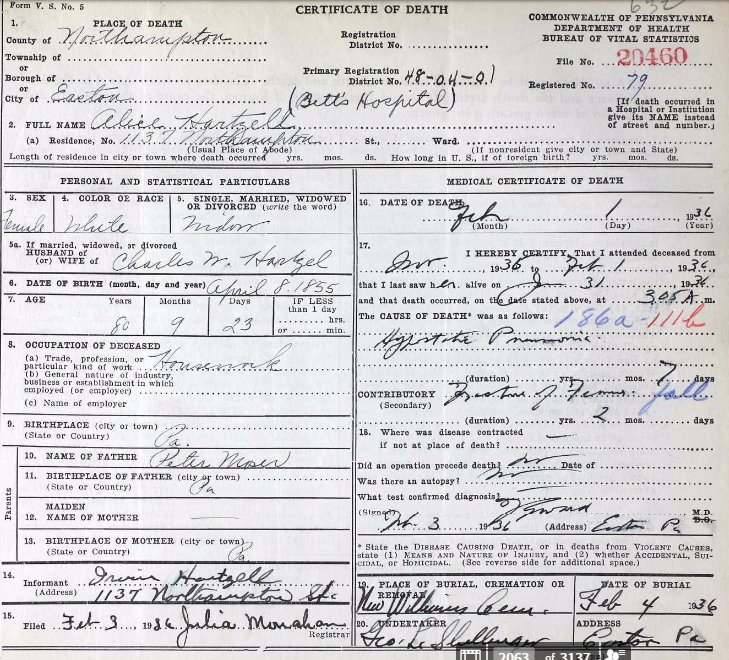 Form V. S. No. 5
CERTIFICATE OF DEATH
COMMONWEALTH OF PENNSYLVANIA
DEPARTMENT OF HEALTH
BUREAU OF VITAL STATISTICS
1. PLACE OF DEATH
County of Northampton
Registration District No.
File No. 20460
Township of
or
Borough of
Primary Registration District No. 48-04-01
Registered No. 79
or
City of Easton
(Bett's Hospital)
[If death occurred in a Hospital or Institution give its NAME instead of street and number.]
2. FULL NAME Alice Hartzell
(a) Residence, No. 1137 Northampton St., Ward.
(Usual Place of Abode)
(If nonresident give city or town and State)
Length of residence in city or town where death occurred yrs. mos. ds. How long in U. S., if of foreign birth? yrs. mos. ds.
PERSONAL AND STATISTICAL PARTICULARS
3. SEX
Female
4. COLOR OR RACE
White
5. SINGLE, MARRIED, WIDOWED OR DIVORCED (write the word)
Widow
5a. If married, widowed, or divorced
HUSBAND of
(or) WIFE of Charles W. Hartzel
6. DATE OF BIRTH (month, day and year) April 8 1855
7. AGE
Years Months Days
80 9 23
IF LESS than 1 day
hrs.
or min.
8. OCCUPATION OF DECEASED
(a) Trade, profession, or particular kind of work Housework
(b) General nature of industry, business or establishment in which employed (or employer)
(c) Name of employer
9. BIRTHPLACE (city or town)
(State or Country) Pa.
Parents
10. NAME OF FATHER Peter Moser
11. BIRTHPLACE OF FATHER (city or town)
(State or Country) Pa
12. MAIDEN NAME OF MOTHER
13. BIRTHPLACE OF MOTHER (city or town)
(State or Country) Pa
14. Informant Irvin Hartzell
(Address) 1137 Northampton St.
15. Filed Feb 3 1936 Julia Monahan
Registrar
MEDICAL CERTIFICATE OF DEATH
16. DATE OF DEATH
Feb 1 1936
(Month) (Day) (Year)
17. I HEREBY CERTIFY, That I attended deceased from
1936 to Feb 1, 1936,
that I last saw her alive on Jan 31 1936
and that death occurred, on the date stated above, at 305 A. m.
The CAUSE OF DEATH* was as follows: 186a-111b
Hypostatic Pneumonia
(duration) yrs. mos. 7 days
CONTRIBUTORY Fracture of Femur fall
(Secondary)
(duration) yrs. 2 mos. days
18. Where was disease contracted
if not at place of death?
Did an operation precede death? no Date of
Was there an autopsy? no
What test confirmed diagnosis?
(Signed) M.D.
D.O.
Feb. 3 1936 (Address) Easton Pa
* State the DISEASE CAUSING DEATH, or in deaths from VIOLENT CAUSES, state (1) MEANS AND NATURE OF INJURY, and (2) whether ACCIDENTAL, SUICIDAL, or HOMICIDAL. (See reverse side for additional space.)
19. PLACE OF BURIAL, CREMATION OR REMOVAL
DATE OF BURIAL
Feb 4 1936
20. Undertaker
ADDRESS
Easton Pa
2063 of 3137